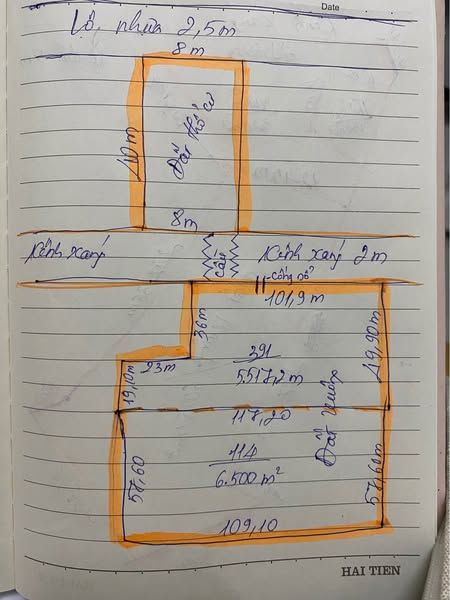 Date
Lộ nhựa 2,5m
8m
40m
Đất thổ cư
8m
Kênh xáng
Cầu
Kênh xáng 2m
Cống hở
101,9m
36m
49,90m
391
5.517,2m
23m
19,10m
117,20
Đất vườn
114
6.500m²
57,60
57,60m
109,10
HAI TIEN